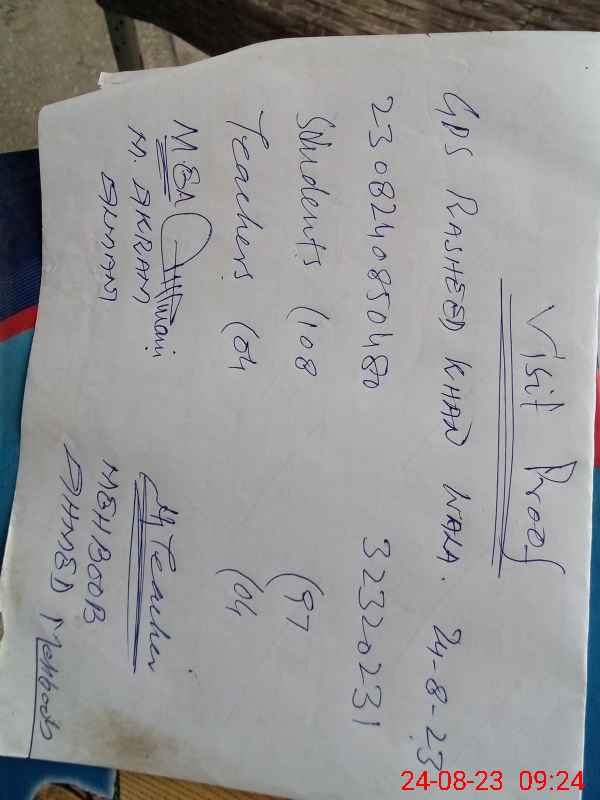 Visit Proof
GPS RASHEED KHAN WALA. 24-8-23
2308240850480 32320231
Students (108 (97
Teachers (04 (04
M.EA
M. AKRAM
H Teacher
MEHBOOB
AHMED Mehboob
24-08-23 09:24